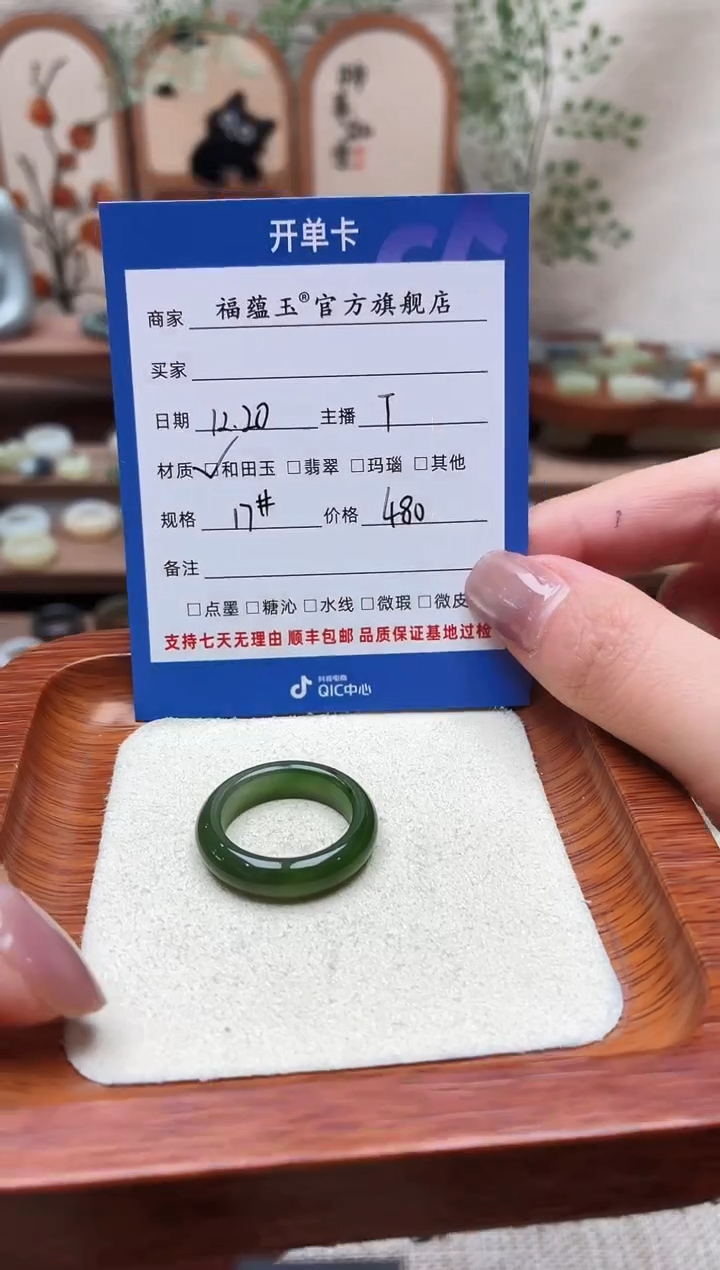 开单卡
商家 福蕴玉®官方旗舰店
买家
日期 12.20 主播 T
材质 ☑和田玉 □翡翠 □玛瑙 □其他
规格 17# 价格 480
备注
□点墨 □糖沁 □水线 □微瑕 □微皮
支持七天无理由 顺丰包邮 品质保证基地过检
抖音电商
QIC中心